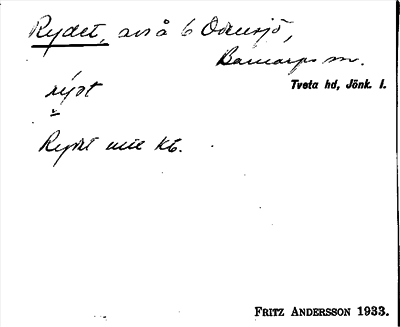 Rydet, avs å 6 Odensjö,
Barnarps sn.
Tveta hd, Jönk. l.
rýdt
Rydet
Kb.
FRITZ ANDERSSON 1933.